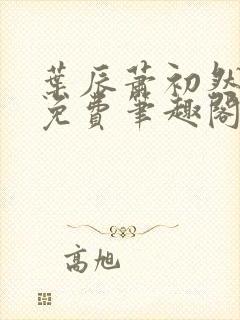 葉辰蕭初然
免費筆趣閣
高旭